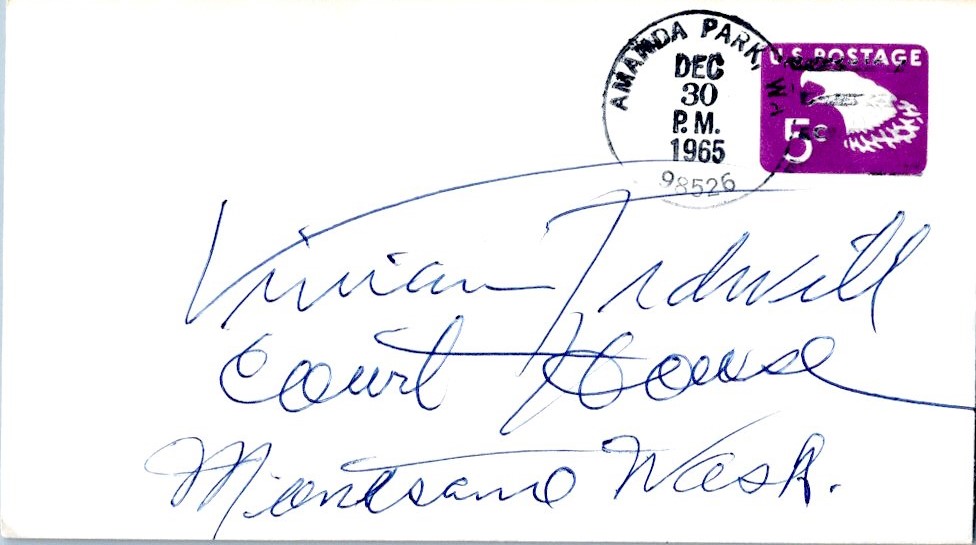 AMANDA PARK, WA
DEC
30
P.M.
1965
98526
U.S. POSTAGE
5c
Vivian Tidwell
Court House
Montesano Wash.